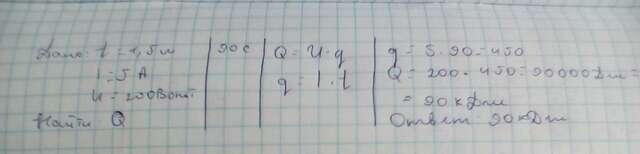 Дано: t = 1,5 м
I = 5 А
U = 200 Вольт
Найти Q
90 с
Q = U · q
q = I · t
q = 5 · 90 = 450
Q = 200 · 450 = 90000 Дж =
= 90 кДж
Ответ: 90 кДж